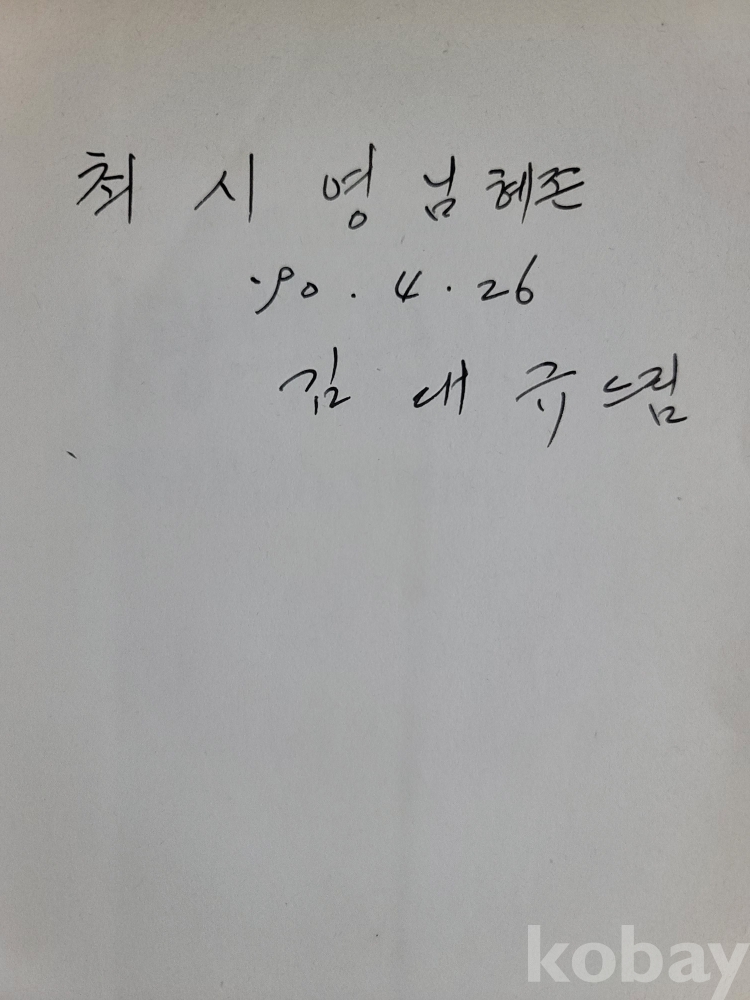 최 시 영 님 혜존
'90. 4. 26
김 대 규 드림
kobay